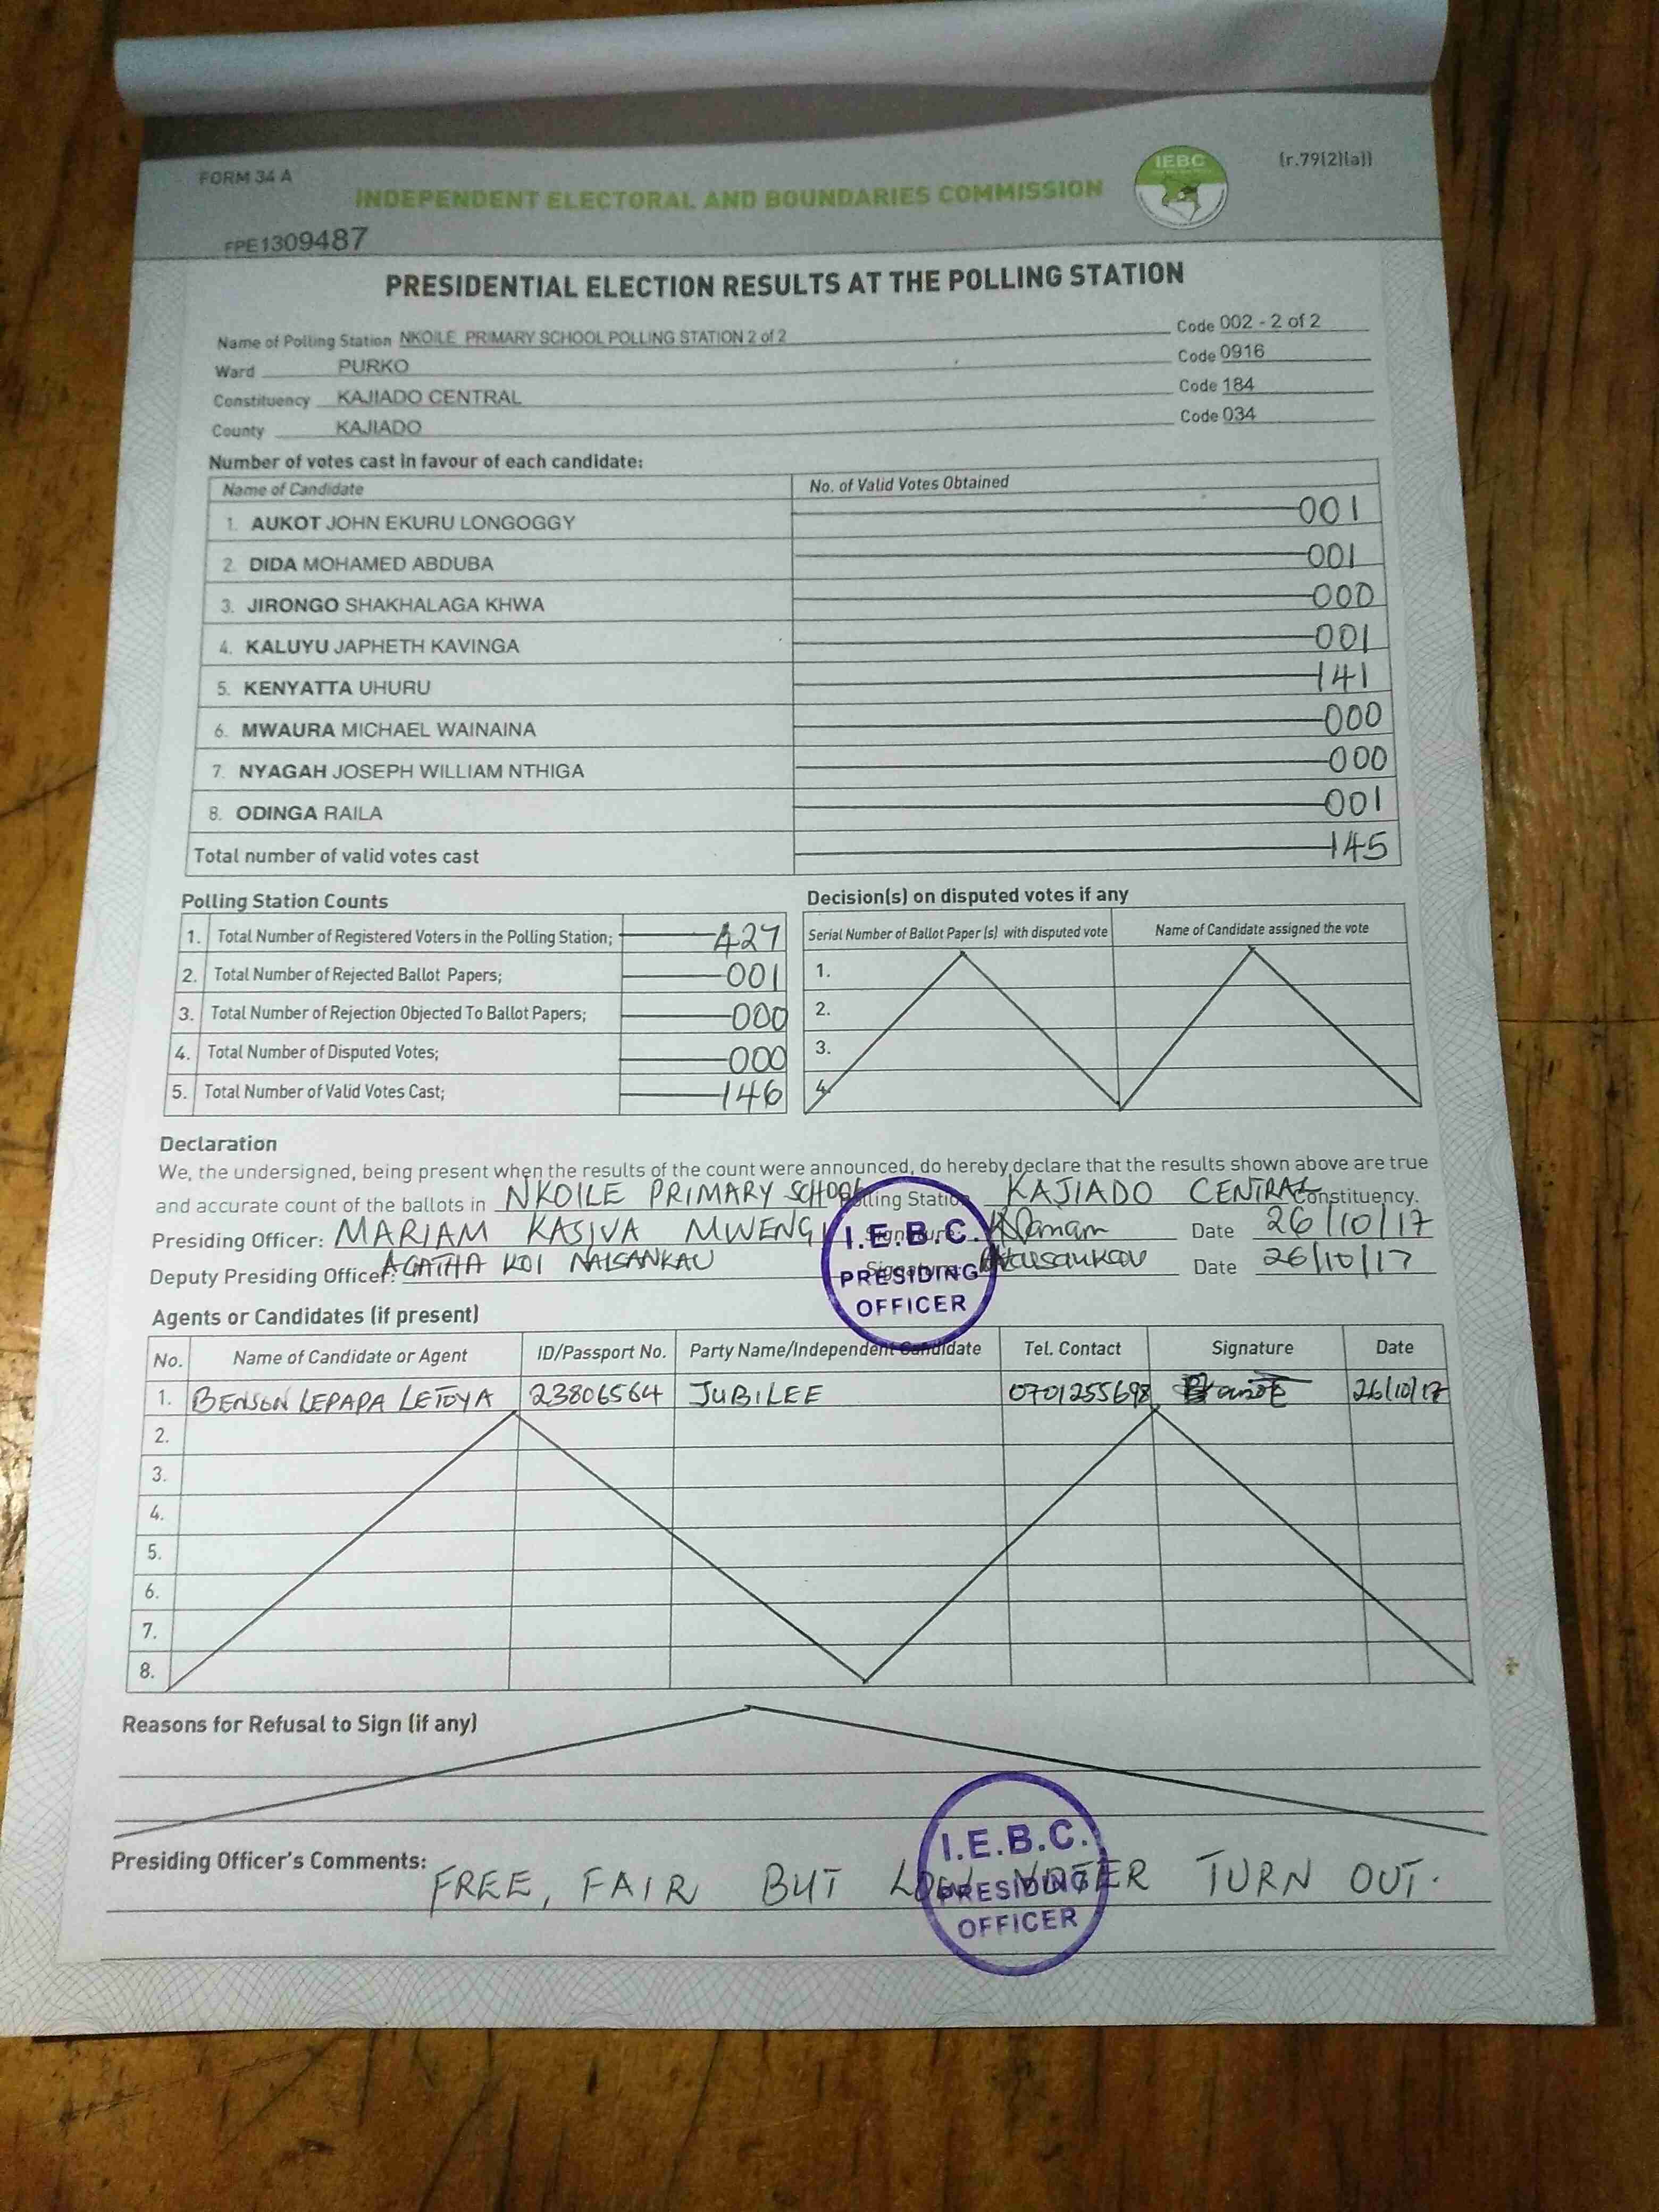 FORM 34 A
IEBC
(r.79(2)(a))
INDEPENDENT ELECTORAL AND BOUNDARIES COMMISSION
FPE1309487
PRESIDENTIAL ELECTION RESULTS AT THE POLLING STATION
Name of Polling Station NKOILE PRIMARY SCHOOL POLLING STATION 2 of 2 Code 002 - 2 of 2
Ward PURKO Code 0916
Constituency KAJIADO CENTRAL Code 184
County KAJIADO Code 034
Number of votes cast in favour of each candidate:
Name of Candidate No. of Valid Votes Obtained
1. AUKOT JOHN EKURU LONGOGGY 001
2. DIDA MOHAMED ABDUBA 001
3. JIRONGO SHAKHALAGA KHWA 000
4. KALUYU JAPHETH KAVINGA 001
5. KENYATTA UHURU 141
6. MWAURA MICHAEL WAINAINA 000
7. NYAGAH JOSEPH WILLIAM NTHIGA 000
8. ODINGA RAILA 001
Total number of valid votes cast 145
Polling Station Counts
1. Total Number of Registered Voters in the Polling Station; 427
2. Total Number of Rejected Ballot Papers; 001
3. Total Number of Rejection Objected To Ballot Papers; 000
4. Total Number of Disputed Votes; 000
5. Total Number of Valid Votes Cast; 146
Decision(s) on disputed votes if any
Serial Number of Ballot Paper (s) with disputed vote Name of Candidate assigned the vote
1.
2.
3.
4.
Declaration
We, the undersigned, being present when the results of the count were announced, do hereby declare that the results shown above are true
and accurate count of the ballots in NKOILE PRIMARY SCHOOL Polling Station KAJIADO CENTRAL Constituency.
Presiding Officer: MARIAM KASIVA MWENGI Signature: Date 26/10/17
Deputy Presiding Officer: AGATHA KOI NAISANKAU Signature: Date 26/10/17
I.E.B.C.
PRESIDING
OFFICER
Agents or Candidates (if present)
No. Name of Candidate or Agent ID/Passport No. Party Name/Independent Candidate Tel. Contact Signature Date
1. BENSON LEPAPA LETOYA 23806564 JUBILEE 0701255698 26/10/17
2.
3.
4.
5.
6.
7.
8.
Reasons for Refusal to Sign (if any)
Presiding Officer's Comments: FREE, FAIR BUT LOW VOTER TURN OUT.
I.E.B.C.
PRESIDING
OFFICER